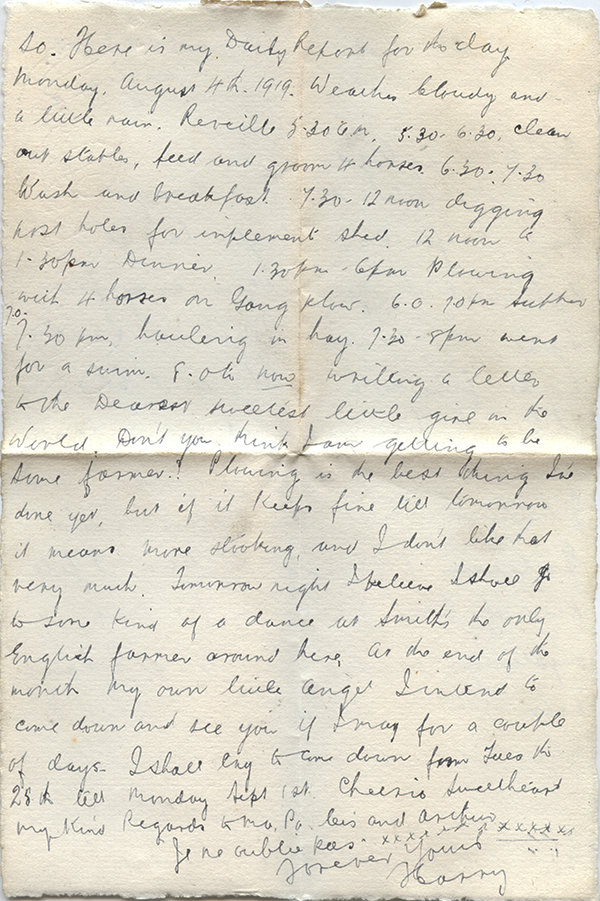 so. Here is my Daily Report for the day
Monday. August 4th. 1919. Weather Cloudy and
a little rain. Reveille 5.30 am, 5.30 - 6.30, clean
out stables, feed and groom 4 horses. 6.30 - 7.30
Wash and breakfast. 7.30 - 12 noon digging
post holes for implement shed. 12 noon to
1.30pm Dinner. 1.30pm - 6pm Plowing
with 4 horses on Gang plow. 6.0. 7.0 pm Supper
7.0 -
7.30 pm, hauling in hay. 7.30 - 8pm went
for a swim. 8.0 to now writing a letter
to the Dearest sweetest little girl in the
World. Don't you think I am getting to be
some farmer!! Plowing is the best thing I've
done yet, but if it keeps fine till tomorrow
it means more stooking, and I don't like that
very much. Tomorrow night I believe I shall go
to some kind of a dance at Smith's the only
English farmer around here. At the end of the
month my own little angel I intend to
come down and see you if I may for a couple
of days - I shall try to come down from the
28th till Monday Sept 1st. Cheerio Sweetheart
my Kind Regards to Ma, Pa, and Arthur
Je ne oublie pas. xxxxxxxx xxxxxx
Forever Yours
Harry